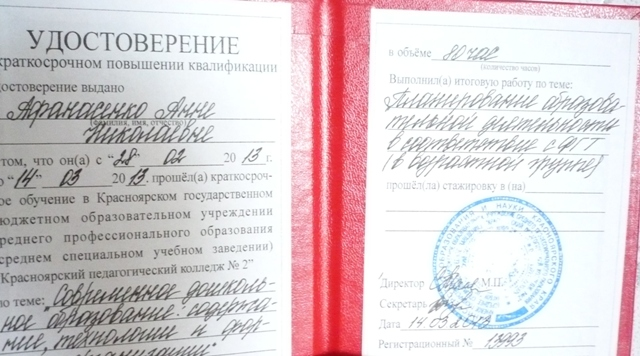 УДОСТОВЕРЕНИЕ
краткосрочном повышении квалификации
достоверение выдано
Афанасенко Анне
(фамилия, имя, отчество)
Николаевне
том, что он(а) с "28" 02 2013 г.
о "14" 03 2013. прошёл(а) краткосроч-
ое обучение в Красноярском государственном
юджетном образовательном учреждении
реднего профессионального образования
среднем специальном учебном заведении)
Красноярский педагогический колледж № 2"
по теме: "Современное дошколь-
ное образование: содержа-
ние, технологии и фор-
в объёме 80 час
(количество часов)
Выполнил(а) итоговую работу по теме:
Планирование образова-
тельной деятельности
в соответствие с ФГТ
(в возрастной группе)
прошёл(ла) стажировку в (на)
Директор М.П.
Секретарь
Дата 14.03.2013
Регистрационный № 13993